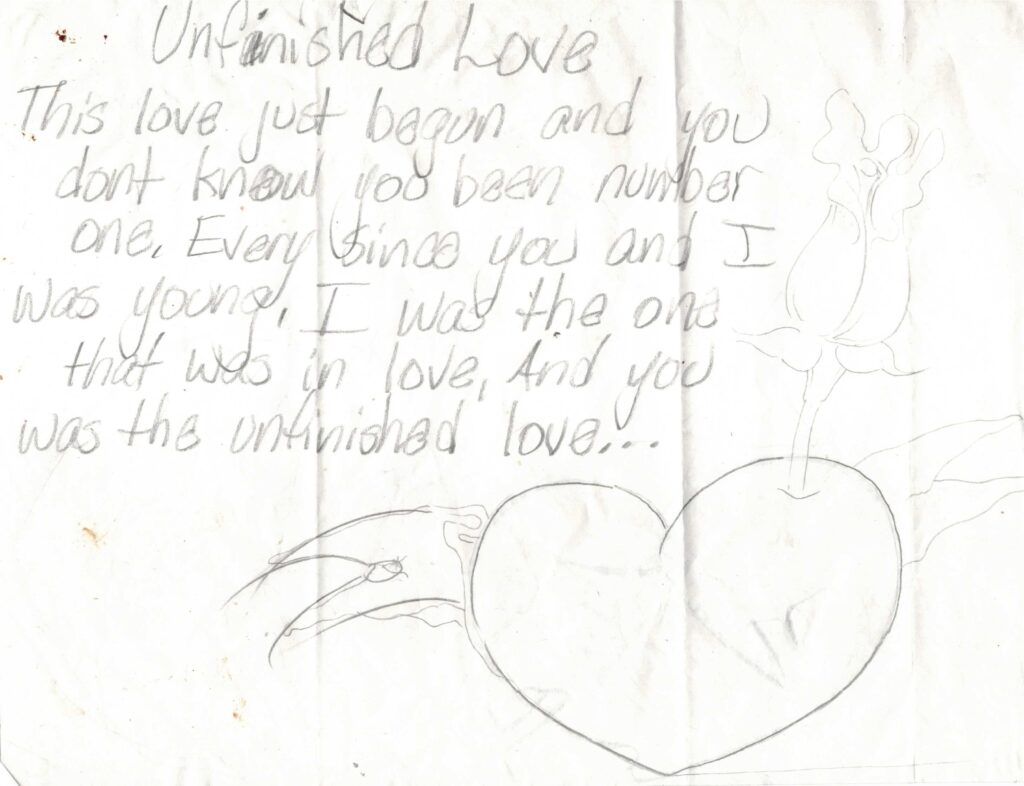 Unfinished Love
This love just begun and you
dont know you been number
one. Every since you and I
was young, I was the one
that was in love, And you
was the unfinished love...